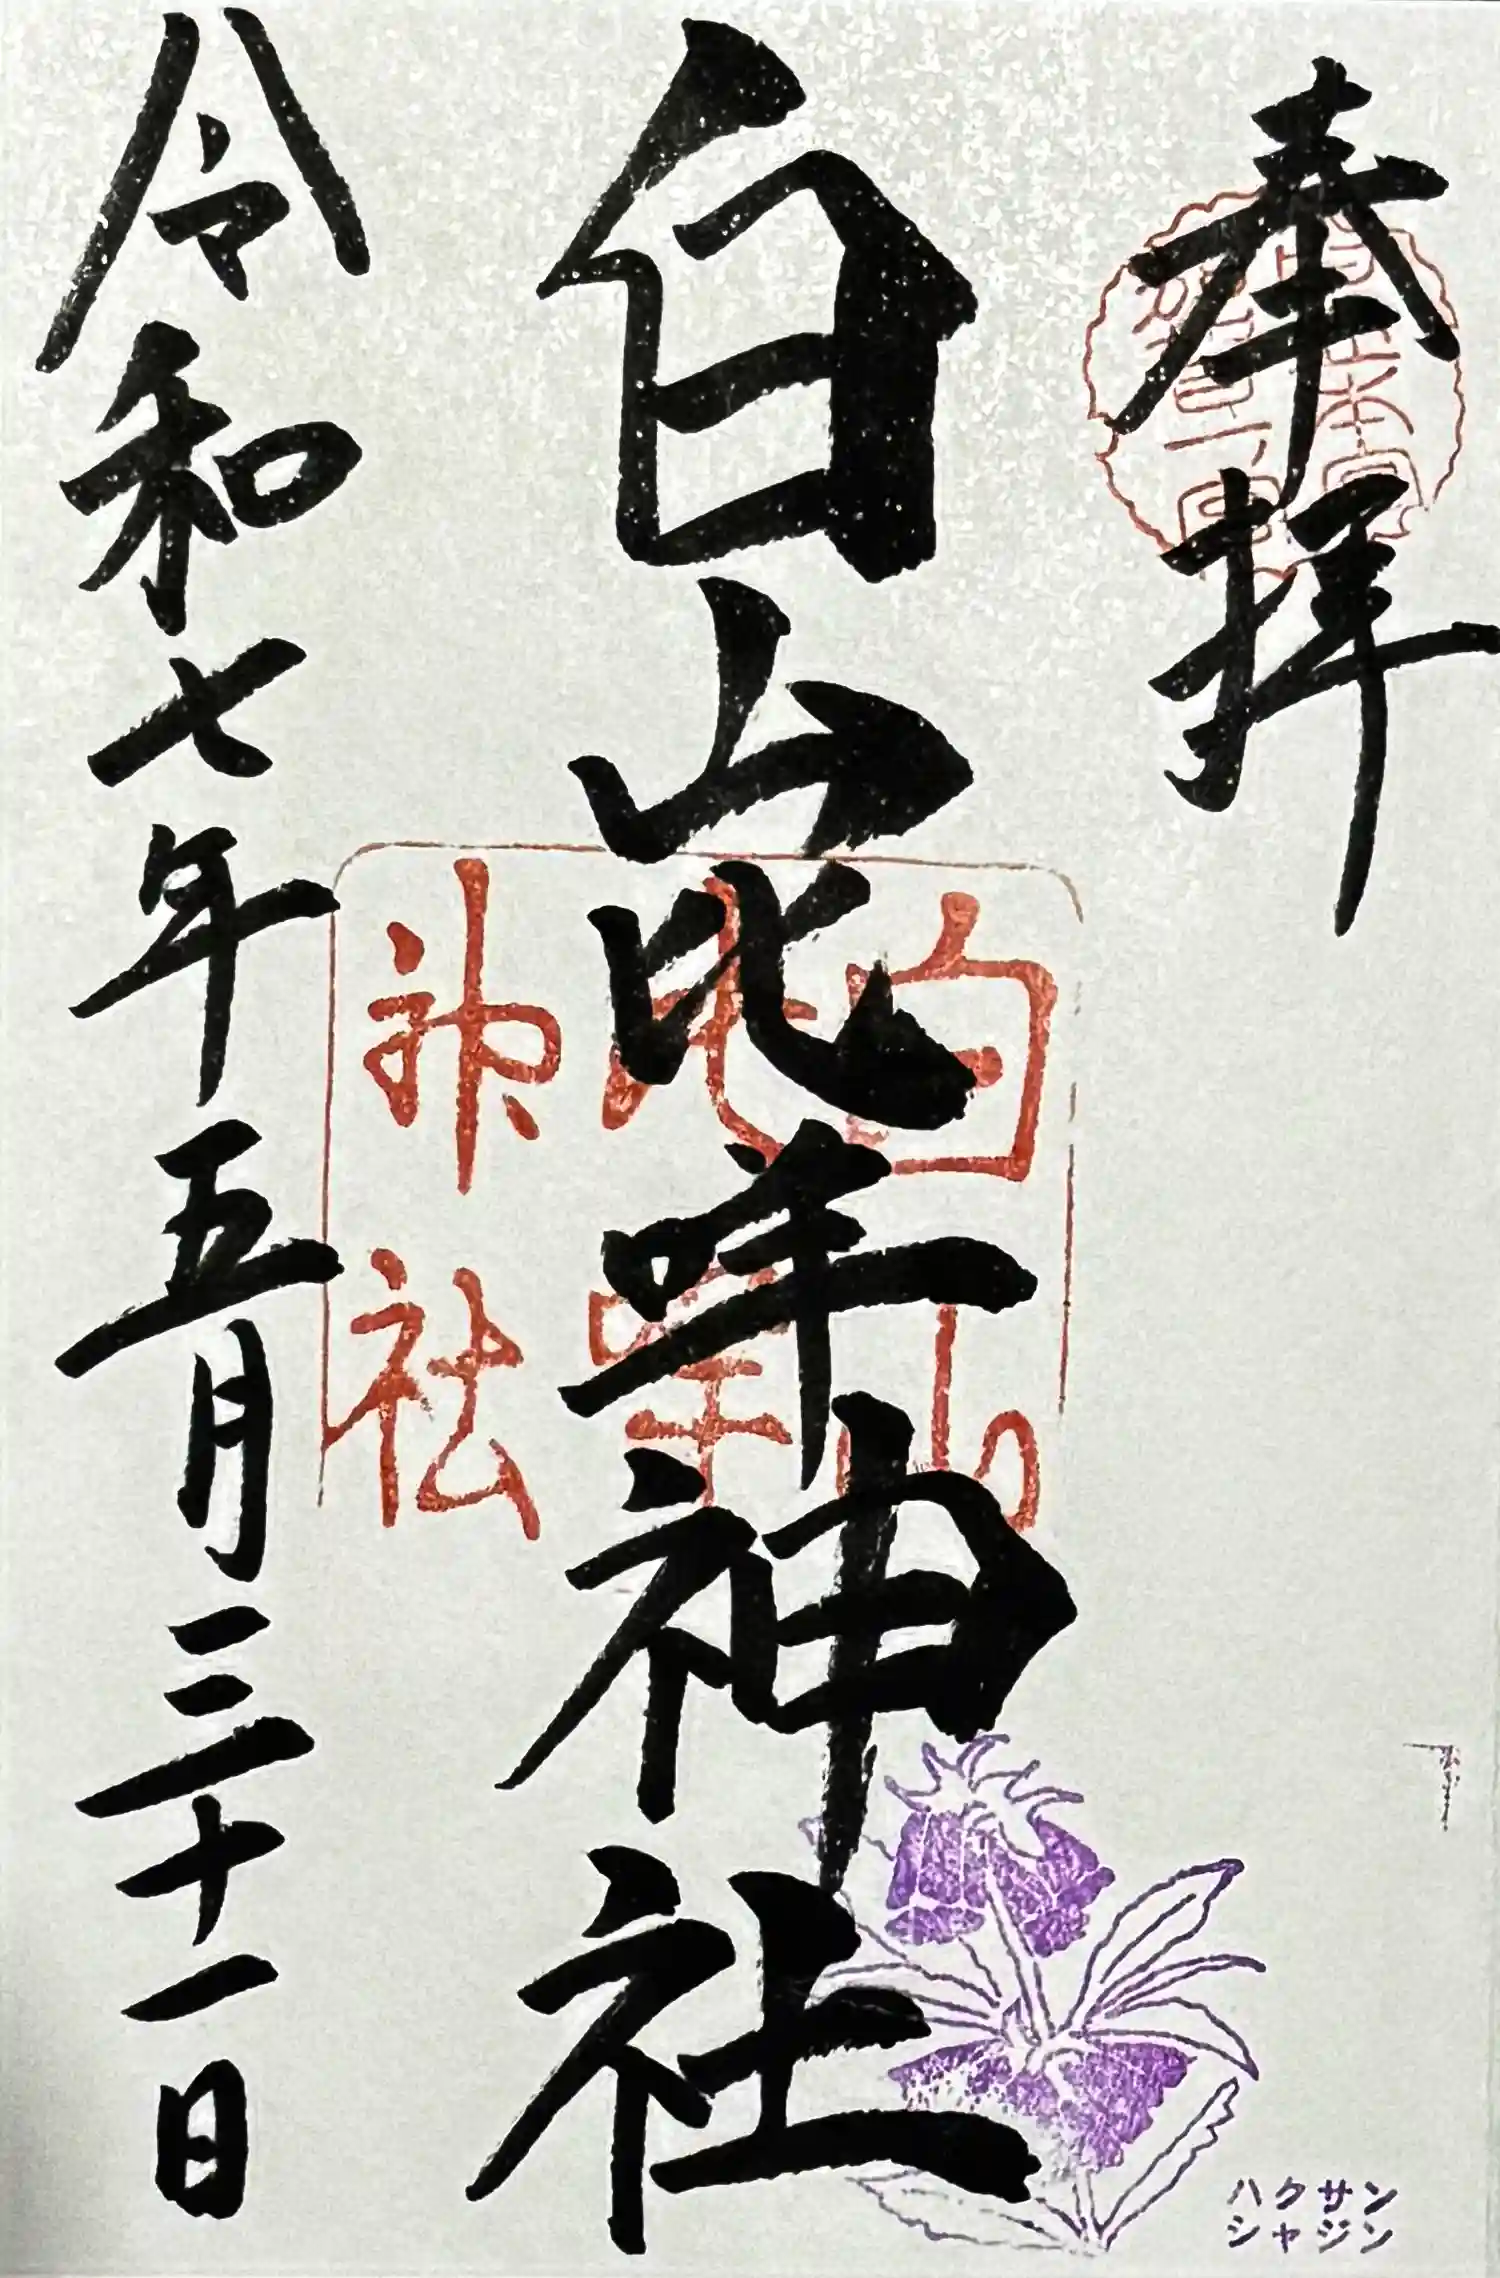 奉拝
白山比咩神社
令和七年五月三十一日
白山
比咩
神社
ハクサン
シャジン